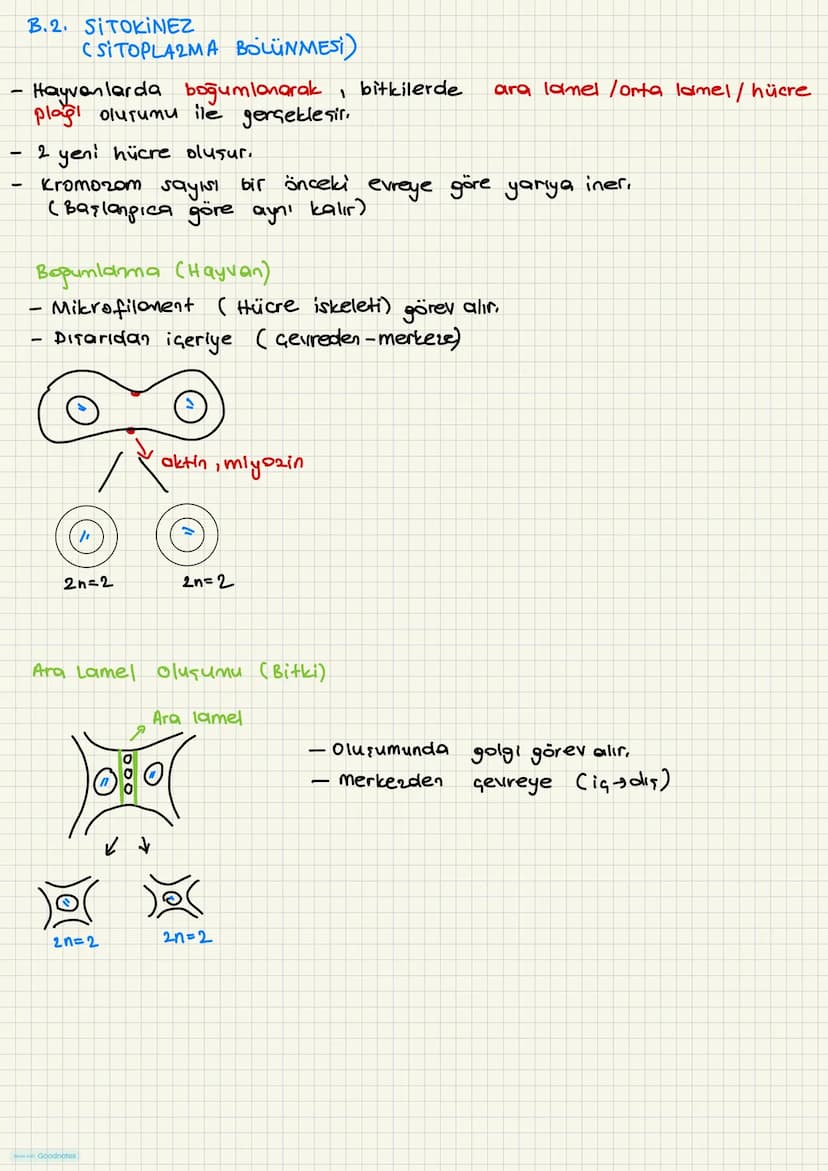 B.2. SİTOKİNEZ
(SİTOPLAZMA BÖLÜNMESİ)
- Hayvanlarda boğumlanarak, bitkilerde ara lamel /orta lamel / hücre
plağı oluşumu ile gerçekleşir.
- 2 yeni hücre oluşur.
- Kromozom sayısı bir önceki evreye göre yarıya iner.
(Başlangıca göre aynı kalır)
Boğumlanma (Hayvan)
- Mikrofilament (Hücre iskeleti) görev alır.
- Dışarıdan içeriye (çevreden-merkeze)
aktin, miyozin
2n=2 2n=2
Ara Lamel Oluşumu (Bitki)
Ara lamel
- Oluşumunda golgi görev alır.
- merkezden çevreye (iç→dış)
2n=2 2n=2
Made with Goodnotes